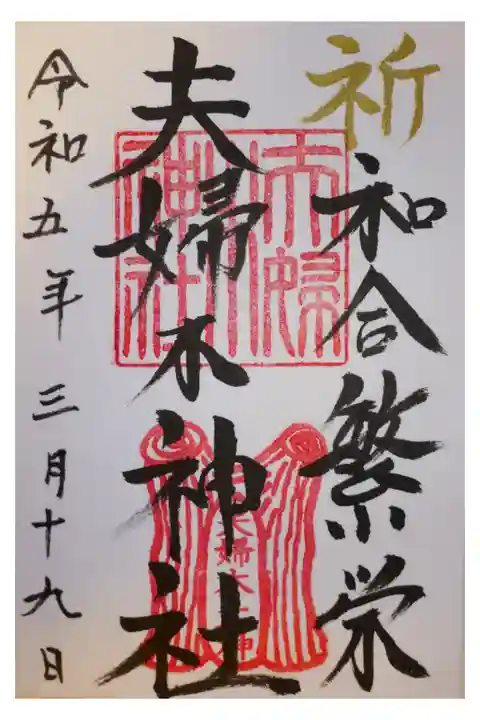 祈和合繁栄
夫婦木神社
令和五年三月十九日
夫婦木神社